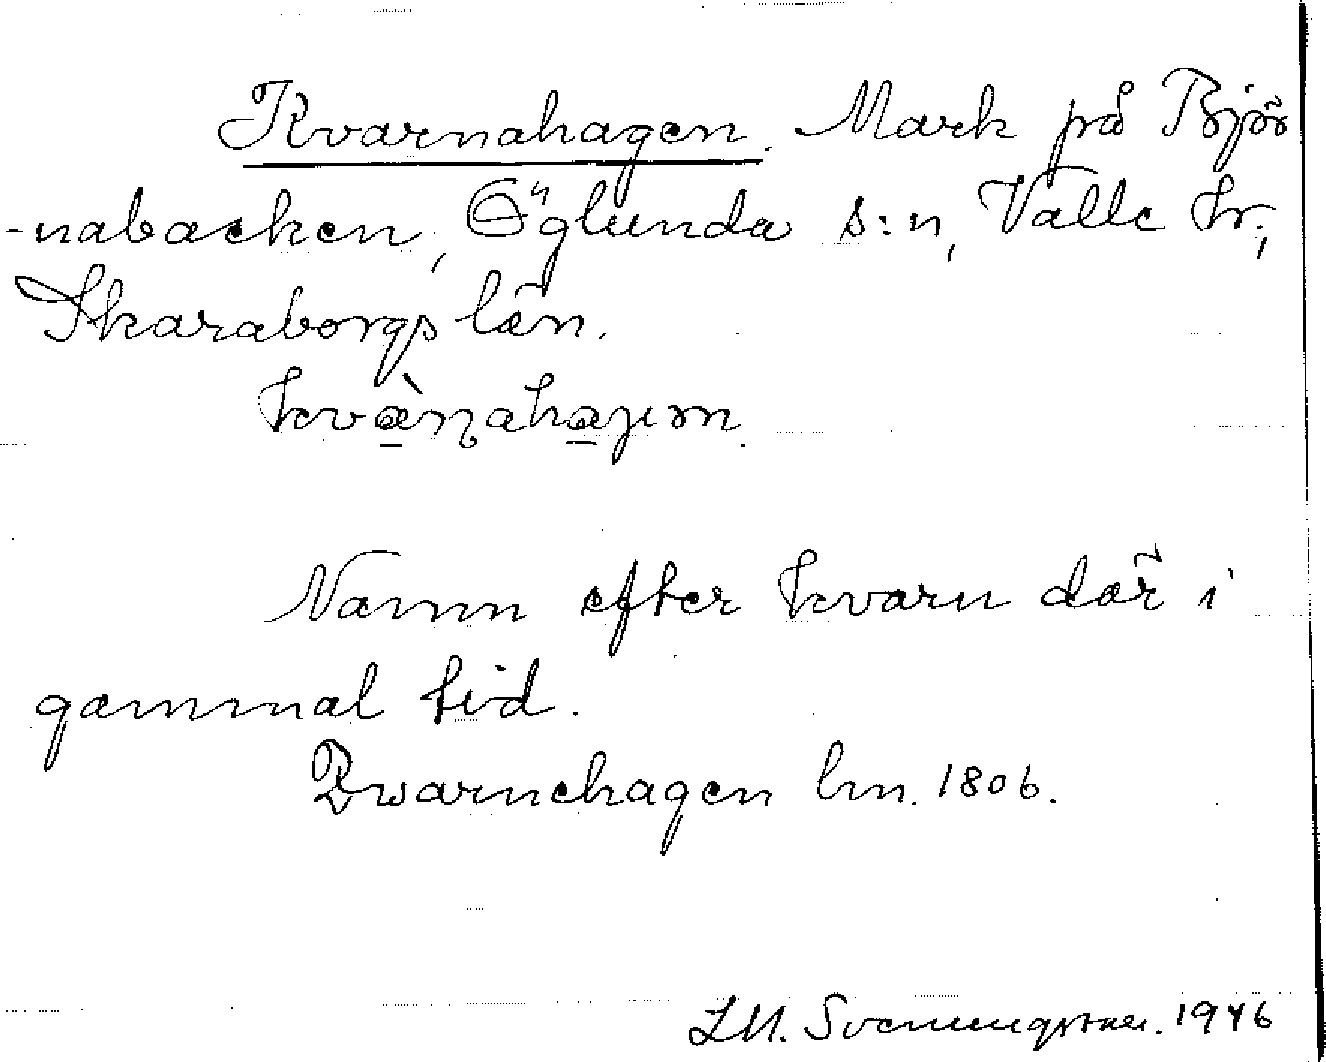 Kvarnahagen. Mark på Björ
-nabacken, Öglunda s:n, Valle hr.,
Skaraborgs län.
Namn efter kvarn där i
gammal tid.
Qwarnehagen lm. 1806.
L.M. Svenungsson. 1946